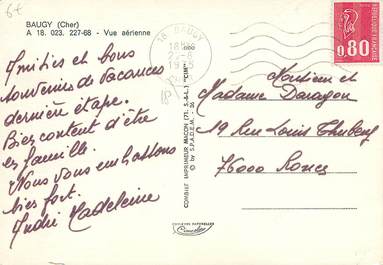 6€
BAUGY (Cher)
A 18. 023. 227-68 - Vue aérienne
Amitiés et bons
souvenirs de vacances
dernière étape.
Bien content d'être
en famille.
Nous vous embrassons
bien fort.
André Madeleine
18 BAUGY
COMBIER IMPRIMEUR MACON (71. S.-&-L.) "CIM"
© by S.P.A.D.E.M. - 26
COULEURS NATURELLES
REPUBLIQUE FRANÇAISE
0,80
Monsieur et
Madame Daragon
19 Rue Louis
76000 Rouen